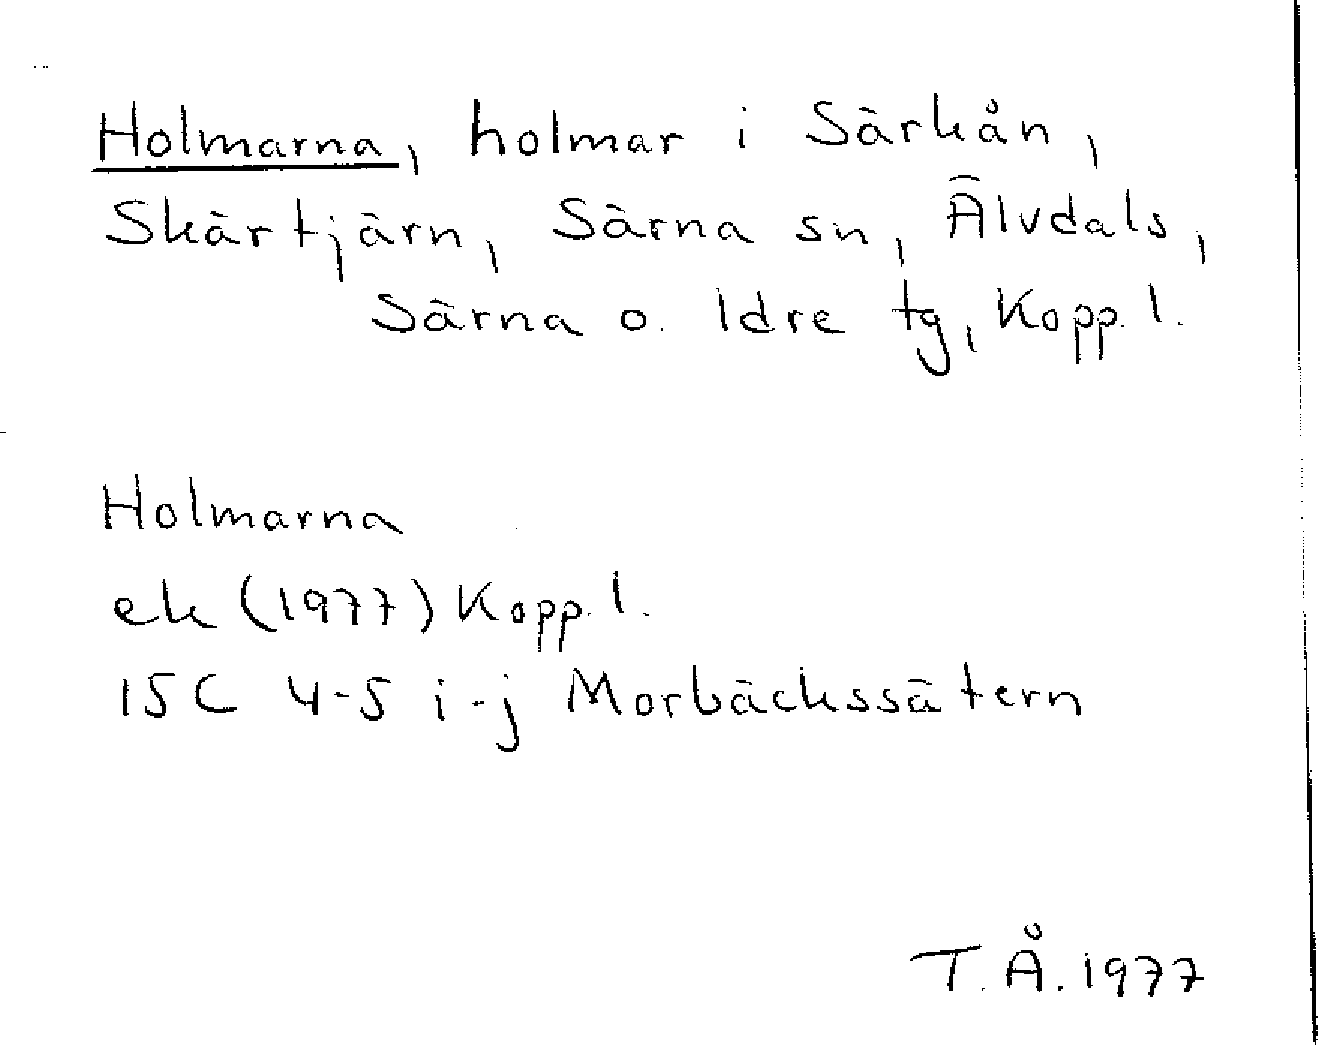 Holmarna, holmar i Särkån,
Skärtjärn, Särna sn, Älvdals,
Särna o. Idre tg, Kopp. l.
Holmarna
ek (1977) Kopp. l.
15C 4-5 i-j Morbäckssätern
T.Å. 1977